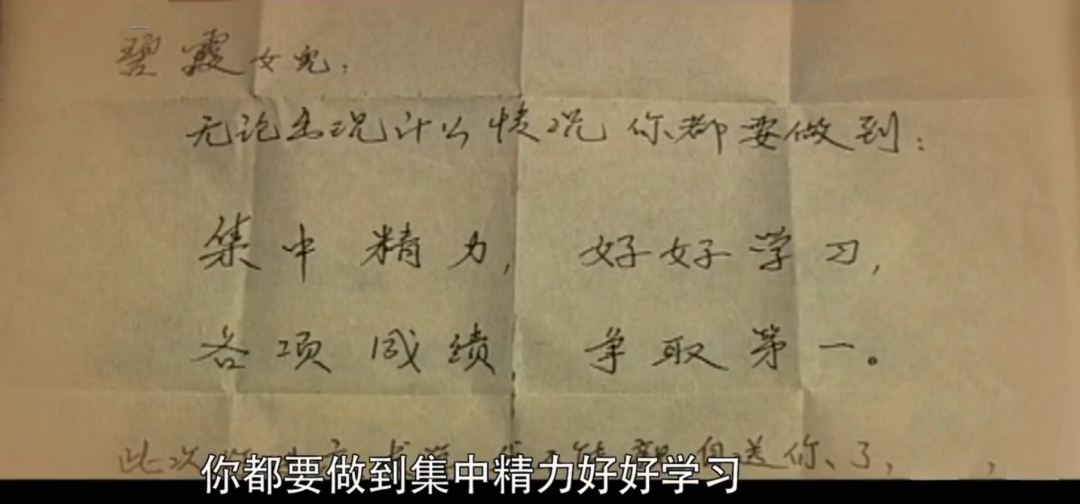 碧霞女儿:
无论出现什么情况你都要做到:
集中精力,好好学习,
各项成绩,争取第一。
此次 送你了,
你都要做到集中精力好好学习